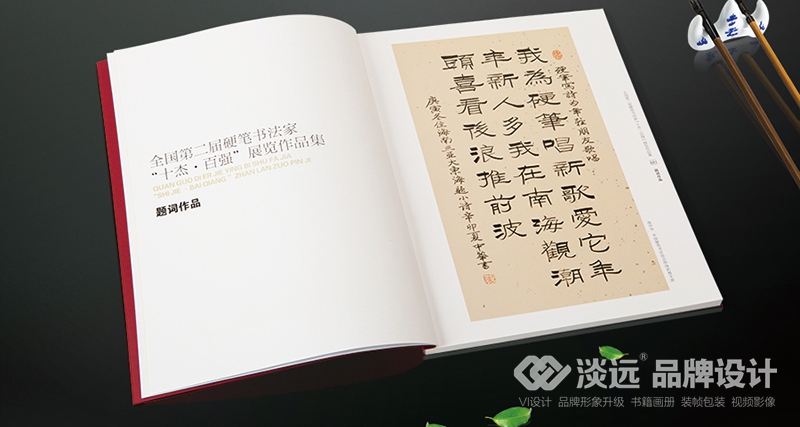 全国第二届硬笔书法家
“十杰·百强”展览作品集
QUAN GUO DI ER JIE YING BI SHU FA JIA
“SHI JIE · BAI QIANG” ZHAN LAN ZUO PIN JI
题词作品
我為硬筆唱新歌愛它年
年新人多我在南海觀潮
頭喜看後浪推前波
庚寅冬住海南三亚大東海小诗辛卯夏中華書
淡远® 品牌设计
VI设计 品牌形象升级 书籍画册 装帧包装 视频影像